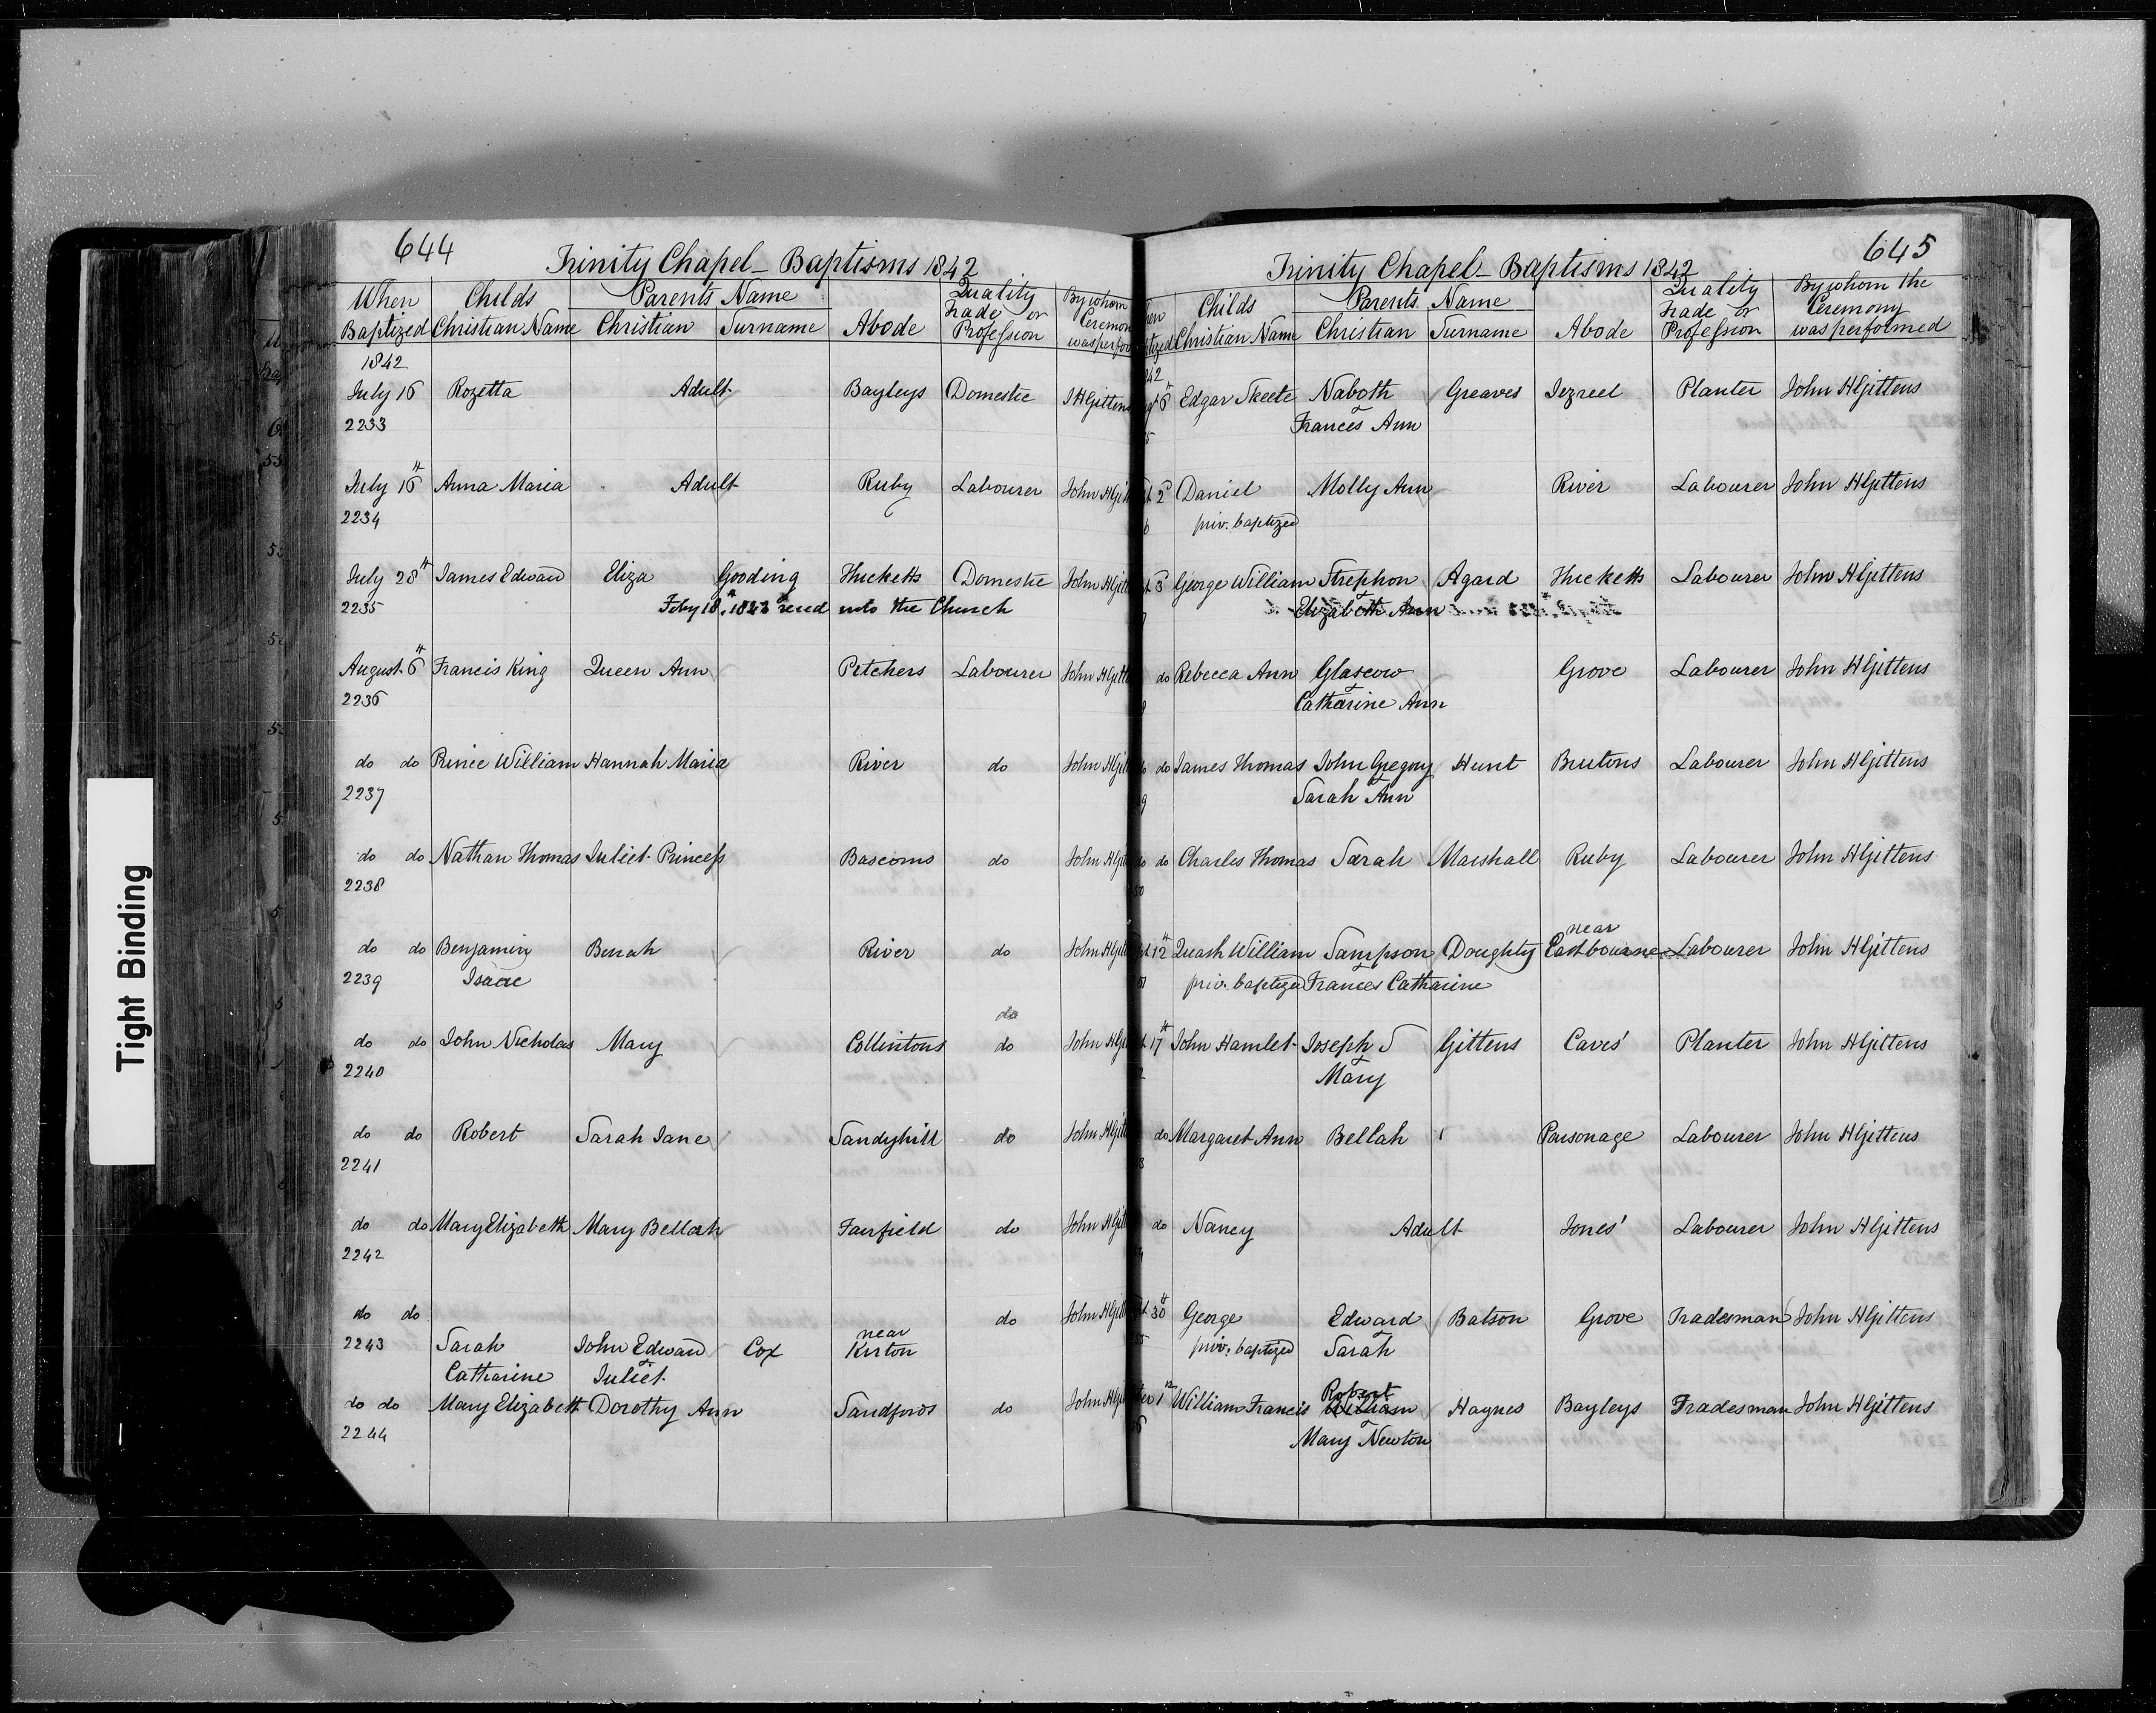 Tight Binding
644
Trinity Chapel - Baptisms 1842
When Baptized
Childs Christian Name
Parents Name
Christian
Surname
Abode
Quality Trade or Profession
By whom Ceremon was perfor
1842
July 16 Rozetta Adult Bayleys Domestic J H Gittens
2233
July 16th Anna Maria Adult Ruby Labourer John H Gitt
2234
July 28th James Edward Eliza Gooding Thicketts Domestic John H Gitte
2235 Feby 18th 1843 recd into the Church
August 6th Francis King Queen Ann Pitchers Labourer John H Gitte
2236
do do Prince William Hannah Maria River do John H Gitt
2237
do do Nathan Thomas Juliet Princess Bascoms do John H Gitt
2238
do do Benjamin Benah River do John H Gitt
2239 Isaac
do
do do John Nicholas Mary Collintons do John H Gitt
2240
do do Robert Sarah Jane Sandyhill do John H Gitt
2241
do do Mary Elizabeth Mary Bellah Fairfield do John H Gitt
2242
do do do John H Gitt
near
2243 Sarah John Edward Cox Kirton
Catharine & Juliet
do do Mary Elizabeth Dorothy Ann Sandfords do John H Gitt
2244
645
Trinity Chapel - Baptisms 1842
Childs Christian Name
Parents Name
Christian
Surname
Abode
Quality Trade or Profession
By whom the Ceremony was performed
6th Edgar Skeete Naboth Greaves Jezreel Planter John H Gittens
& Frances Ann
2d Daniel Molly Ann River Labourer John H Gittens
priv. baptized
3d George William Strephon Agard Thicketts Labourer John H Gittens
& Elizabeth Ann
do Rebecca Ann Glascow Grove Labourer John H Gittens
& Catharine Ann
do James Thomas John Gregory Hunt Brutons Labourer John H Gittens
& Sarah Ann
do Charles Thomas Sarah Marshall Ruby Labourer John H Gittens
near
12th Quash William Sampson Doughty Eastbourne Labourer John H Gittens
priv. baptized & Frances Catharine
17th John Hamlet Joseph S Gittens Caves' Planter John H Gittens
& Mary
do Margaret Ann Bellah Parsonage Labourer John H Gittens
do Nancy Adult Jones' Labourer John H Gittens
30th George Edward Batson Grove Tradesman John H Gittens
priv. baptized & Sarah
Robert
1st William Francis William Haynes Bayleys Tradesman John H Gittens
& Mary Newton